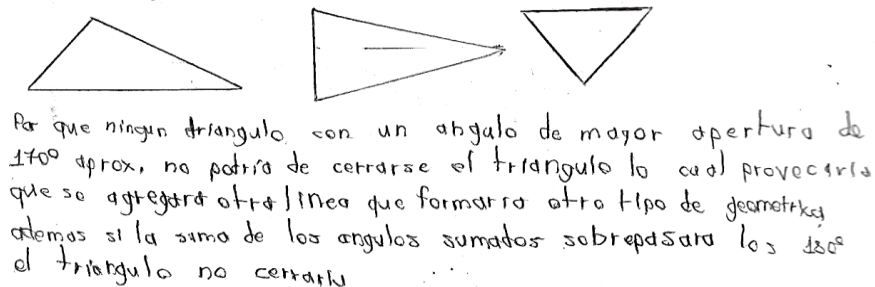 Por que ningun triangulo con un angulo de mayor apertura de
170° aprox, no podria de cerrarse el triangulo lo cual provocaria
que se agregara otra linea que formaria otro tipo de geometrica,
ademas si la suma de los angulos sumados sobrepasara los 180°
el triangulo no cerraria